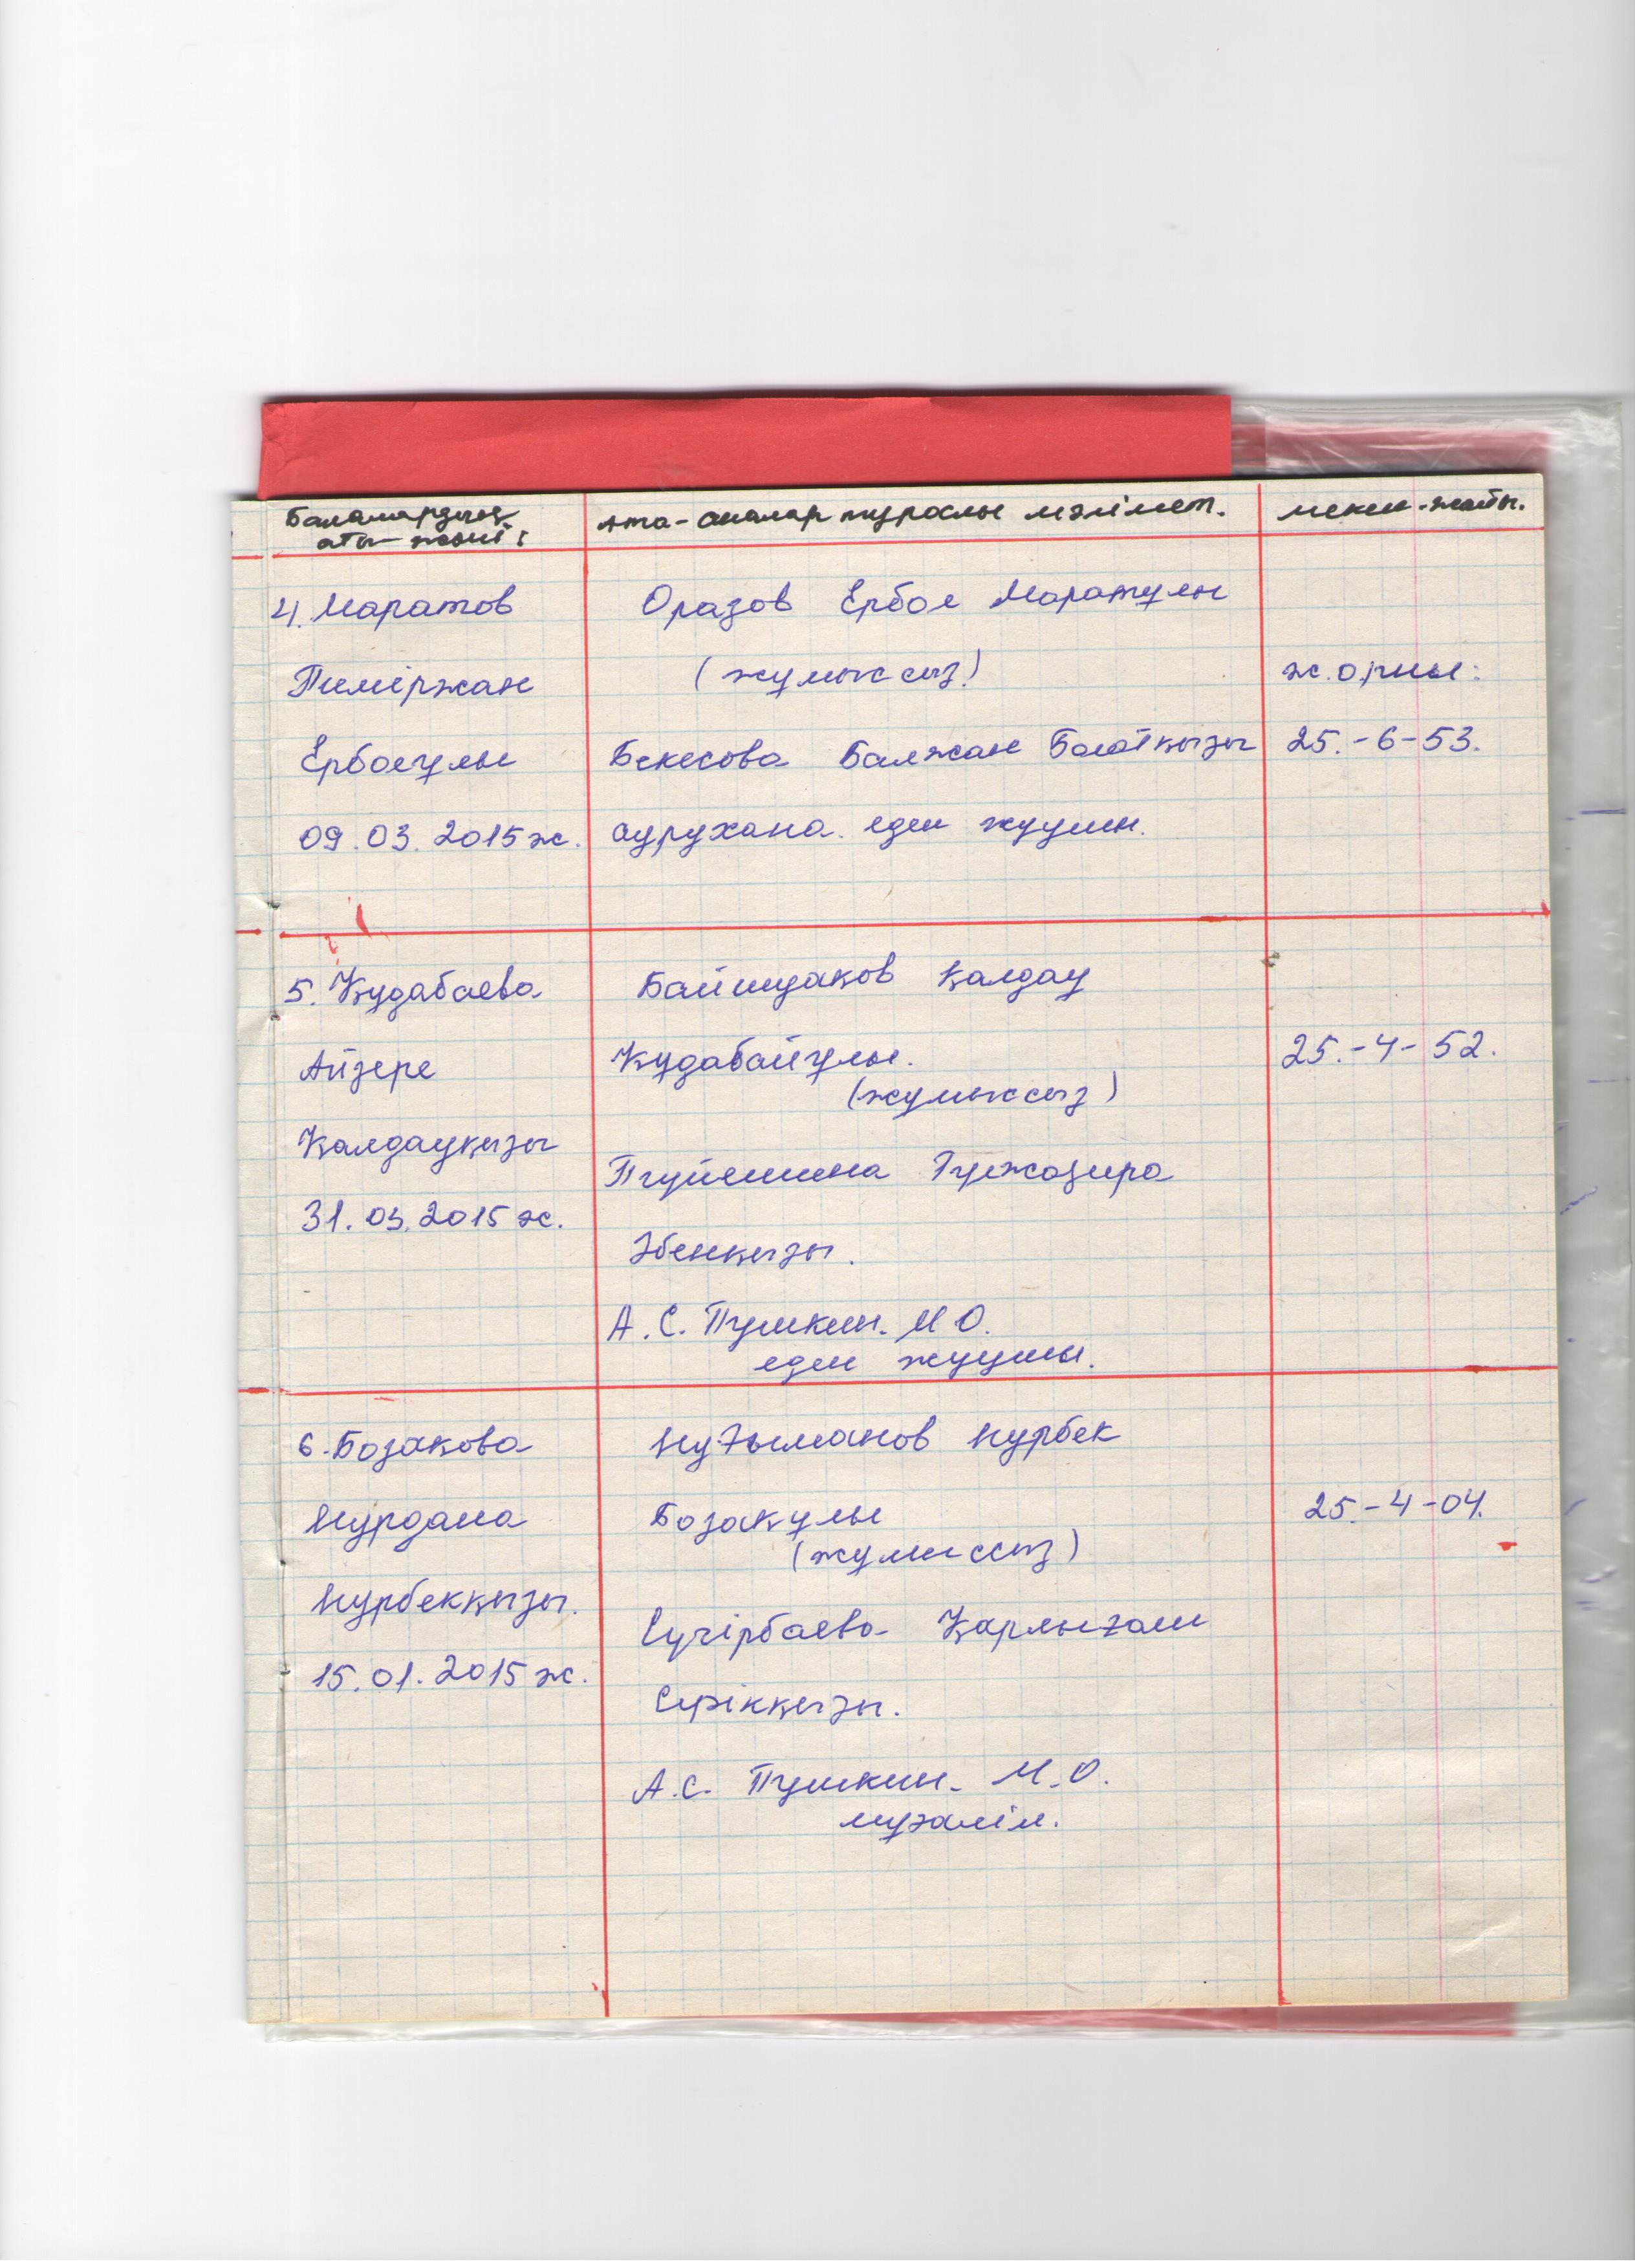 Балалардың
аты-жөні:
Ата-аналар туралы мәлімет.
мекен-жайы.
4. Маратов
Теміржан
Ерболұлы
09.03.2015 ж.
Оразов Ербол Маратұлы
(жұмыссыз)
Бекесова Балжан Болатқызы
аурухана. еден жуушы.
ж.орны:
25.-6-53.
5. Құдабаева
Айзере
Қалдауқызы
31.03.2015 ж.
Баймұлаков Қалдау
Құдабайұлы.
(жұмыссыз)
Түйешина Гүлжазира
Әбенқызы.
А.С. Пушкин. М О.
еден жуушы.
25.-4-52.
6. Бозакова
Нұрдана
Нұрбекқызы.
15.01.2015 ж.
Нұғыманов Нұрбек
Бозақұлы
(жұмыссыз)
Сүгірбаева Қарлығаш
Серікқызы.
А.С. Пушкин. М.О.
мұғалім.
25.-4-04.